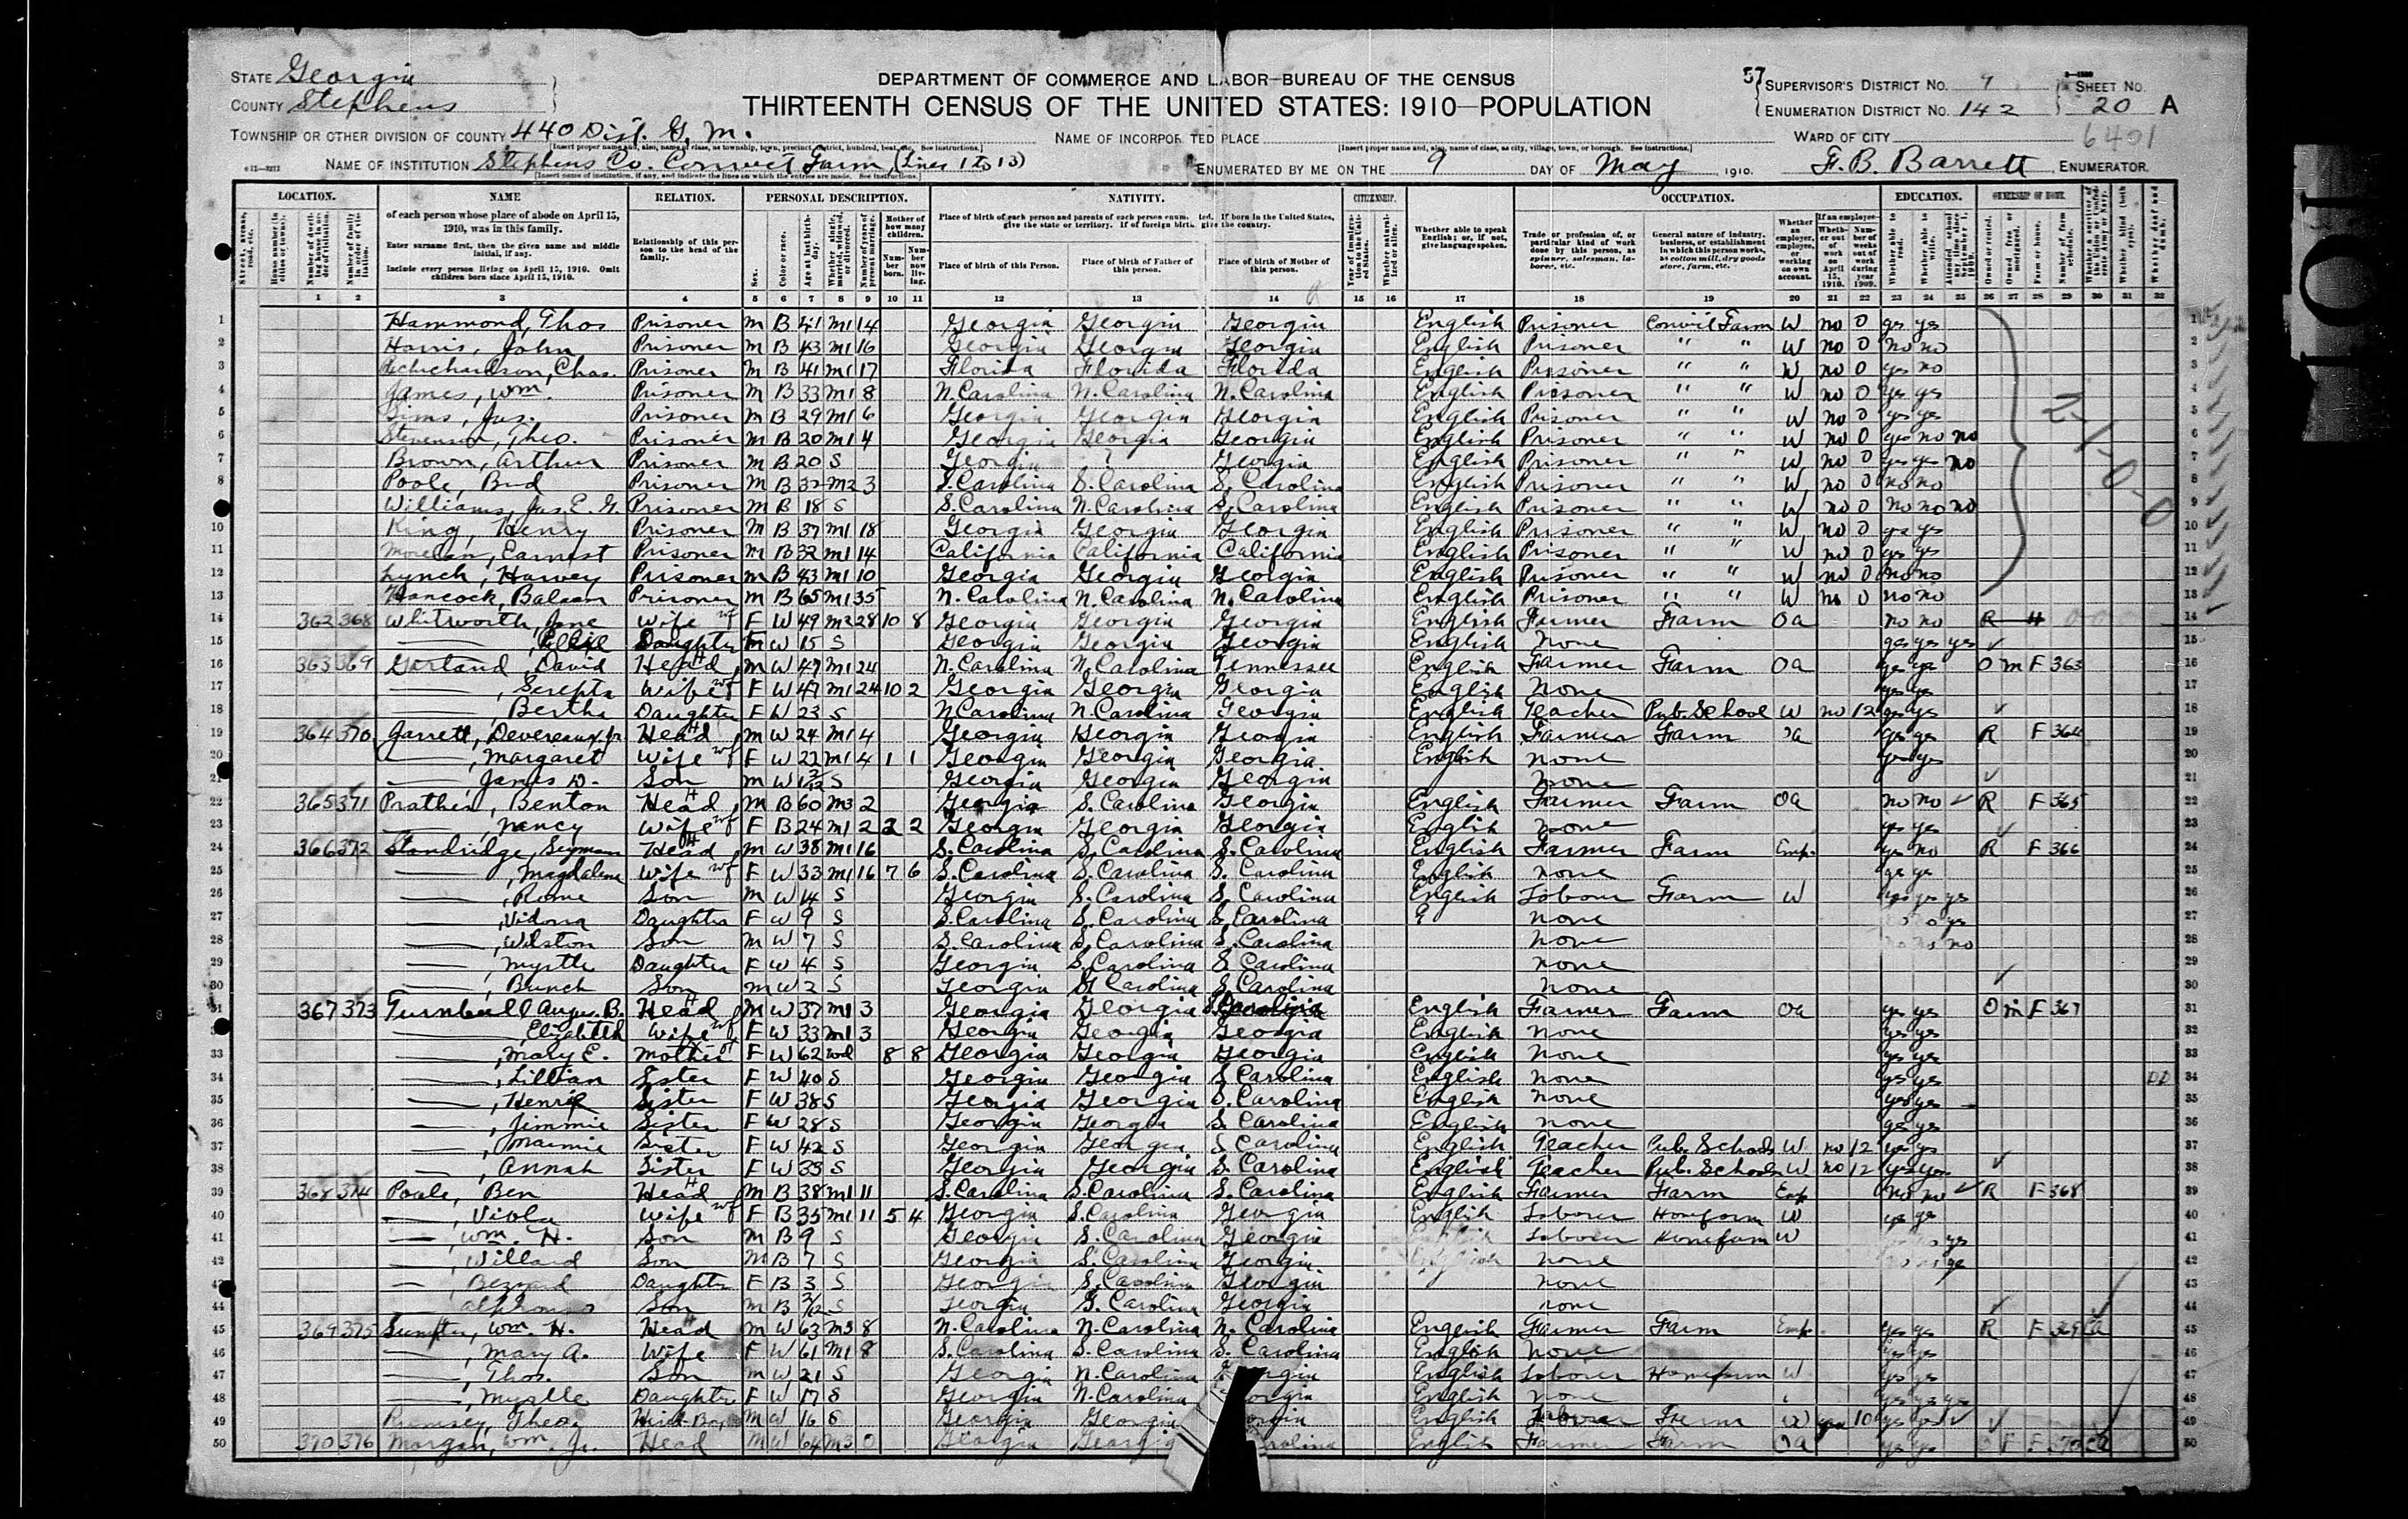 STATE Georgia
COUNTY Stephens
DEPARTMENT OF COMMERCE AND LABOR—BUREAU OF THE CENSUS
THIRTEENTH CENSUS OF THE UNITED STATES: 1910—POPULATION
57 SUPERVISOR'S DISTRICT No. 9 SHEET No.
ENUMERATION DISTRICT No. 142 20 A
TOWNSHIP OR OTHER DIVISION OF COUNTY 440 Dist. G. M. NAME OF INCORPOR TED PLACE WARD OF CITY 6401
NAME OF INSTITUTION Stephens Co. Convict Farm, (Lines 1 to 13) ENUMERATED BY ME ON THE 9 DAY OF May, 1910. F. B. Barrett, ENUMERATOR.
LOCATION. NAME RELATION. PERSONAL DESCRIPTION. NATIVITY. CITIZENSHIP. OCCUPATION. EDUCATION. OWNERSHIP OF HOME.
of each person whose place of abode on April 15, 1910, was in this family.
Enter surname first, then the given name and middle initial, if any.
Include every person living on April 15, 1910. Omit children born since April 15, 1910.
Relationship of this person to the head of the family.
Place of birth of this Person. Place of birth of Father of this person. Place of birth of Mother of this person.
Whether able to speak English; or, if not, give language spoken.
1 2 3 4 5 6 7 8 9 10 11 12 13 14 15 16 17 18 19 20 21 22 23 24 25 26 27 28 29 30 31 32
1 Hammond, Thos Prisoner M B 41 M1 14 Georgia Georgia Georgia English Prisoner Convict Farm W no 0 yes yes 1
2 Harris, John Prisoner M B 43 M1 16 Georgia Georgia Georgia English Prisoner " " W no 0 no no 2
3 Chas. Prisoner M B 41 M1 17 Florida Florida Florida English Prisoner " " W no 0 yes no 3
4 James, Wm. Prisoner M B 33 M1 8 N. Carolina N. Carolina N. Carolina English Prisoner " " W no 0 yes yes 4
5 Sims, Jas. Prisoner M B 29 M1 6 Georgia Georgia Georgia English Prisoner " " W no 0 yes yes 5
6 Stevenson, Theo. Prisoner M B 20 M1 4 Georgia Georgia Georgia English Prisoner " " W no 0 yes no no 6
7 Brown, Arthur Prisoner M B 20 S Georgia ? Georgia English Prisoner " " W no 0 yes yes no 7
8 Poole, Bud Prisoner M B 32 M2 3 S. Carolina S. Carolina S. Carolina English Prisoner " " W no 0 no no 8
9 Williams, Jas. E. G. Prisoner M B 18 S S. Carolina N. Carolina S. Carolina English Prisoner " " W no 0 no no no 9
10 King, Henry Prisoner M B 37 M1 18 Georgia Georgia Georgia English Prisoner " " W no 0 yes yes 10
11 Earnest Prisoner M B 32 M1 14 California California California English Prisoner " " W no 0 yes yes 11
12 Lynch, Harvey Prisoner M B 43 M1 10 Georgia Georgia Georgia English Prisoner " " W no 0 no no 12
13 Hancock, Balaam Prisoner M B 65 M1 35 N. Carolina N. Carolina N. Carolina English Prisoner " " W no 0 no no 13
14 362 368 Whitworth, Jane Wife F W 49 M2 28 10 8 Georgia Georgia Georgia English Farmer Farm Oa no no R H 14
15 Daughter F W 15 S Georgia Georgia Georgia English None yes yes yes 15
16 363 369 Garland, David Head M W 47 M1 24 N. Carolina N. Carolina Tennessee English Farmer Farm Oa yes yes O M F 363 16
17 , Serepta Wife F W 47 M1 24 10 2 Georgia Georgia Georgia English None yes yes 17
18 , Bertha Daughter F W 23 S N Carolina N. Carolina Georgia English Teacher Pub. School W no 12 yes yes 18
19 364 370 Garrett, Devereaux Jr. Head M W 24 M1 4 Georgia Georgia Georgia English Farmer Farm Oa yes yes R F 364 19
20 , Margaret Wife F W 22 M1 4 1 1 Georgia Georgia Georgia English None yes yes 20
21 , James D. Son M W S Georgia Georgia Georgia None 21
22 365 371 Prather, Benton Head M B 60 M3 2 Georgia S. Carolina Georgia English Farmer Farm Oa no no R F 365 22
23 , Nancy Wife F B 24 M1 2 2 2 Georgia Georgia Georgia English None yes yes 23
24 366 372 Standridge, Seymour Head M W 38 M1 16 S. Carolina S. Carolina S. Carolina English Farmer Farm Emp. yes no R F 366 24
25 , Magdalene Wife F W 33 M1 16 7 6 S. Carolina S. Carolina S. Carolina English None yes yes 25
26 , Rome Son M W 14 S Georgia S. Carolina S. Carolina English Labour Farm W yes yes yes 26
27 , Vidona Daughter F W 9 S S. Carolina S. Carolina S. Carolina None yes 27
28 , Wilston Son M W 7 S S. Carolina S. Carolina S. Carolina None no 28
29 , Myrtle Daughter F W 4 S Georgia S. Carolina S. Carolina None 29
30 , Bunch Son M W 2 S Georgia S. Carolina S. Carolina None 30
31 367 373 Turnbull Angus B. Head M W 37 M1 3 Georgia Georgia S Carolina English Farmer Farm Oa yes yes O M F 367 31
32 , Elizabeth Wife F W 33 M1 3 Georgia Georgia Georgia English None yes yes 32
33 , Mary E. Mother F W 62 Wd 8 8 Georgia Georgia Georgia English None yes yes 33
34 , Lillian Sister F W 40 S Georgia Georgia S Carolina English None yes yes 34
35 , Henri Sister F W 38 S Georgia Georgia S. Carolina English None yes yes 35
36 , Jimmie Sister F W 28 S Georgia Georgia S Carolina English None yes yes 36
37 , Maimie Sister F W 42 S Georgia Georgia S Carolina English Teacher Pub. Schools W no 12 yes yes 37
38 , Annah Sister F W 33 S Georgia Georgia S. Carolina English Teacher Pub. Schools W no 12 yes yes 38
39 368 374 Poole, Ben Head M B 38 M1 11 S. Carolina S. Carolina S. Carolina English Farmer Farm Emp no no R F 368 39
40 , Viola Wife F B 35 M1 11 5 4 Georgia S. Carolina Georgia English Laborer Homefarm W yes yes 40
41 , Wm. H. Son M B 9 S Georgia S. Carolina Georgia Laborer Homefarm W yes 41
42 , Willard Son M B 7 S Georgia S. Carolina Georgia None 42
43 Daughter F B 3 S Georgia S. Carolina Georgia None 43
44 Alphonso Son M B 2/12 S Georgia S. Carolina Georgia None 44
45 369 375 Sumpter, Wm. H. Head M W 63 M3 8 N. Carolina N. Carolina N. Carolina English Farmer Farm Emp. yes yes R F 45
46 , Mary A. Wife F W 61 M1 8 S. Carolina S. Carolina S. Carolina English None yes yes 46
47 , Thos. Son M W 21 S Georgia N. Carolina English Laborer Homefarm W yes yes 47
48 , Myrtle Daughter F W 17 S Georgia N. Carolina English None yes yes yes 48
49 Ramsey, Theo. M W 16 S Georgia Georgia English Laborer Farm W yes 10 yes yes 49
50 370 376 Morgan, Wm. Jr. Head M W 64 M3 0 Georgia Georgia English Farmer Farm Oa yes yes O F F 370 50